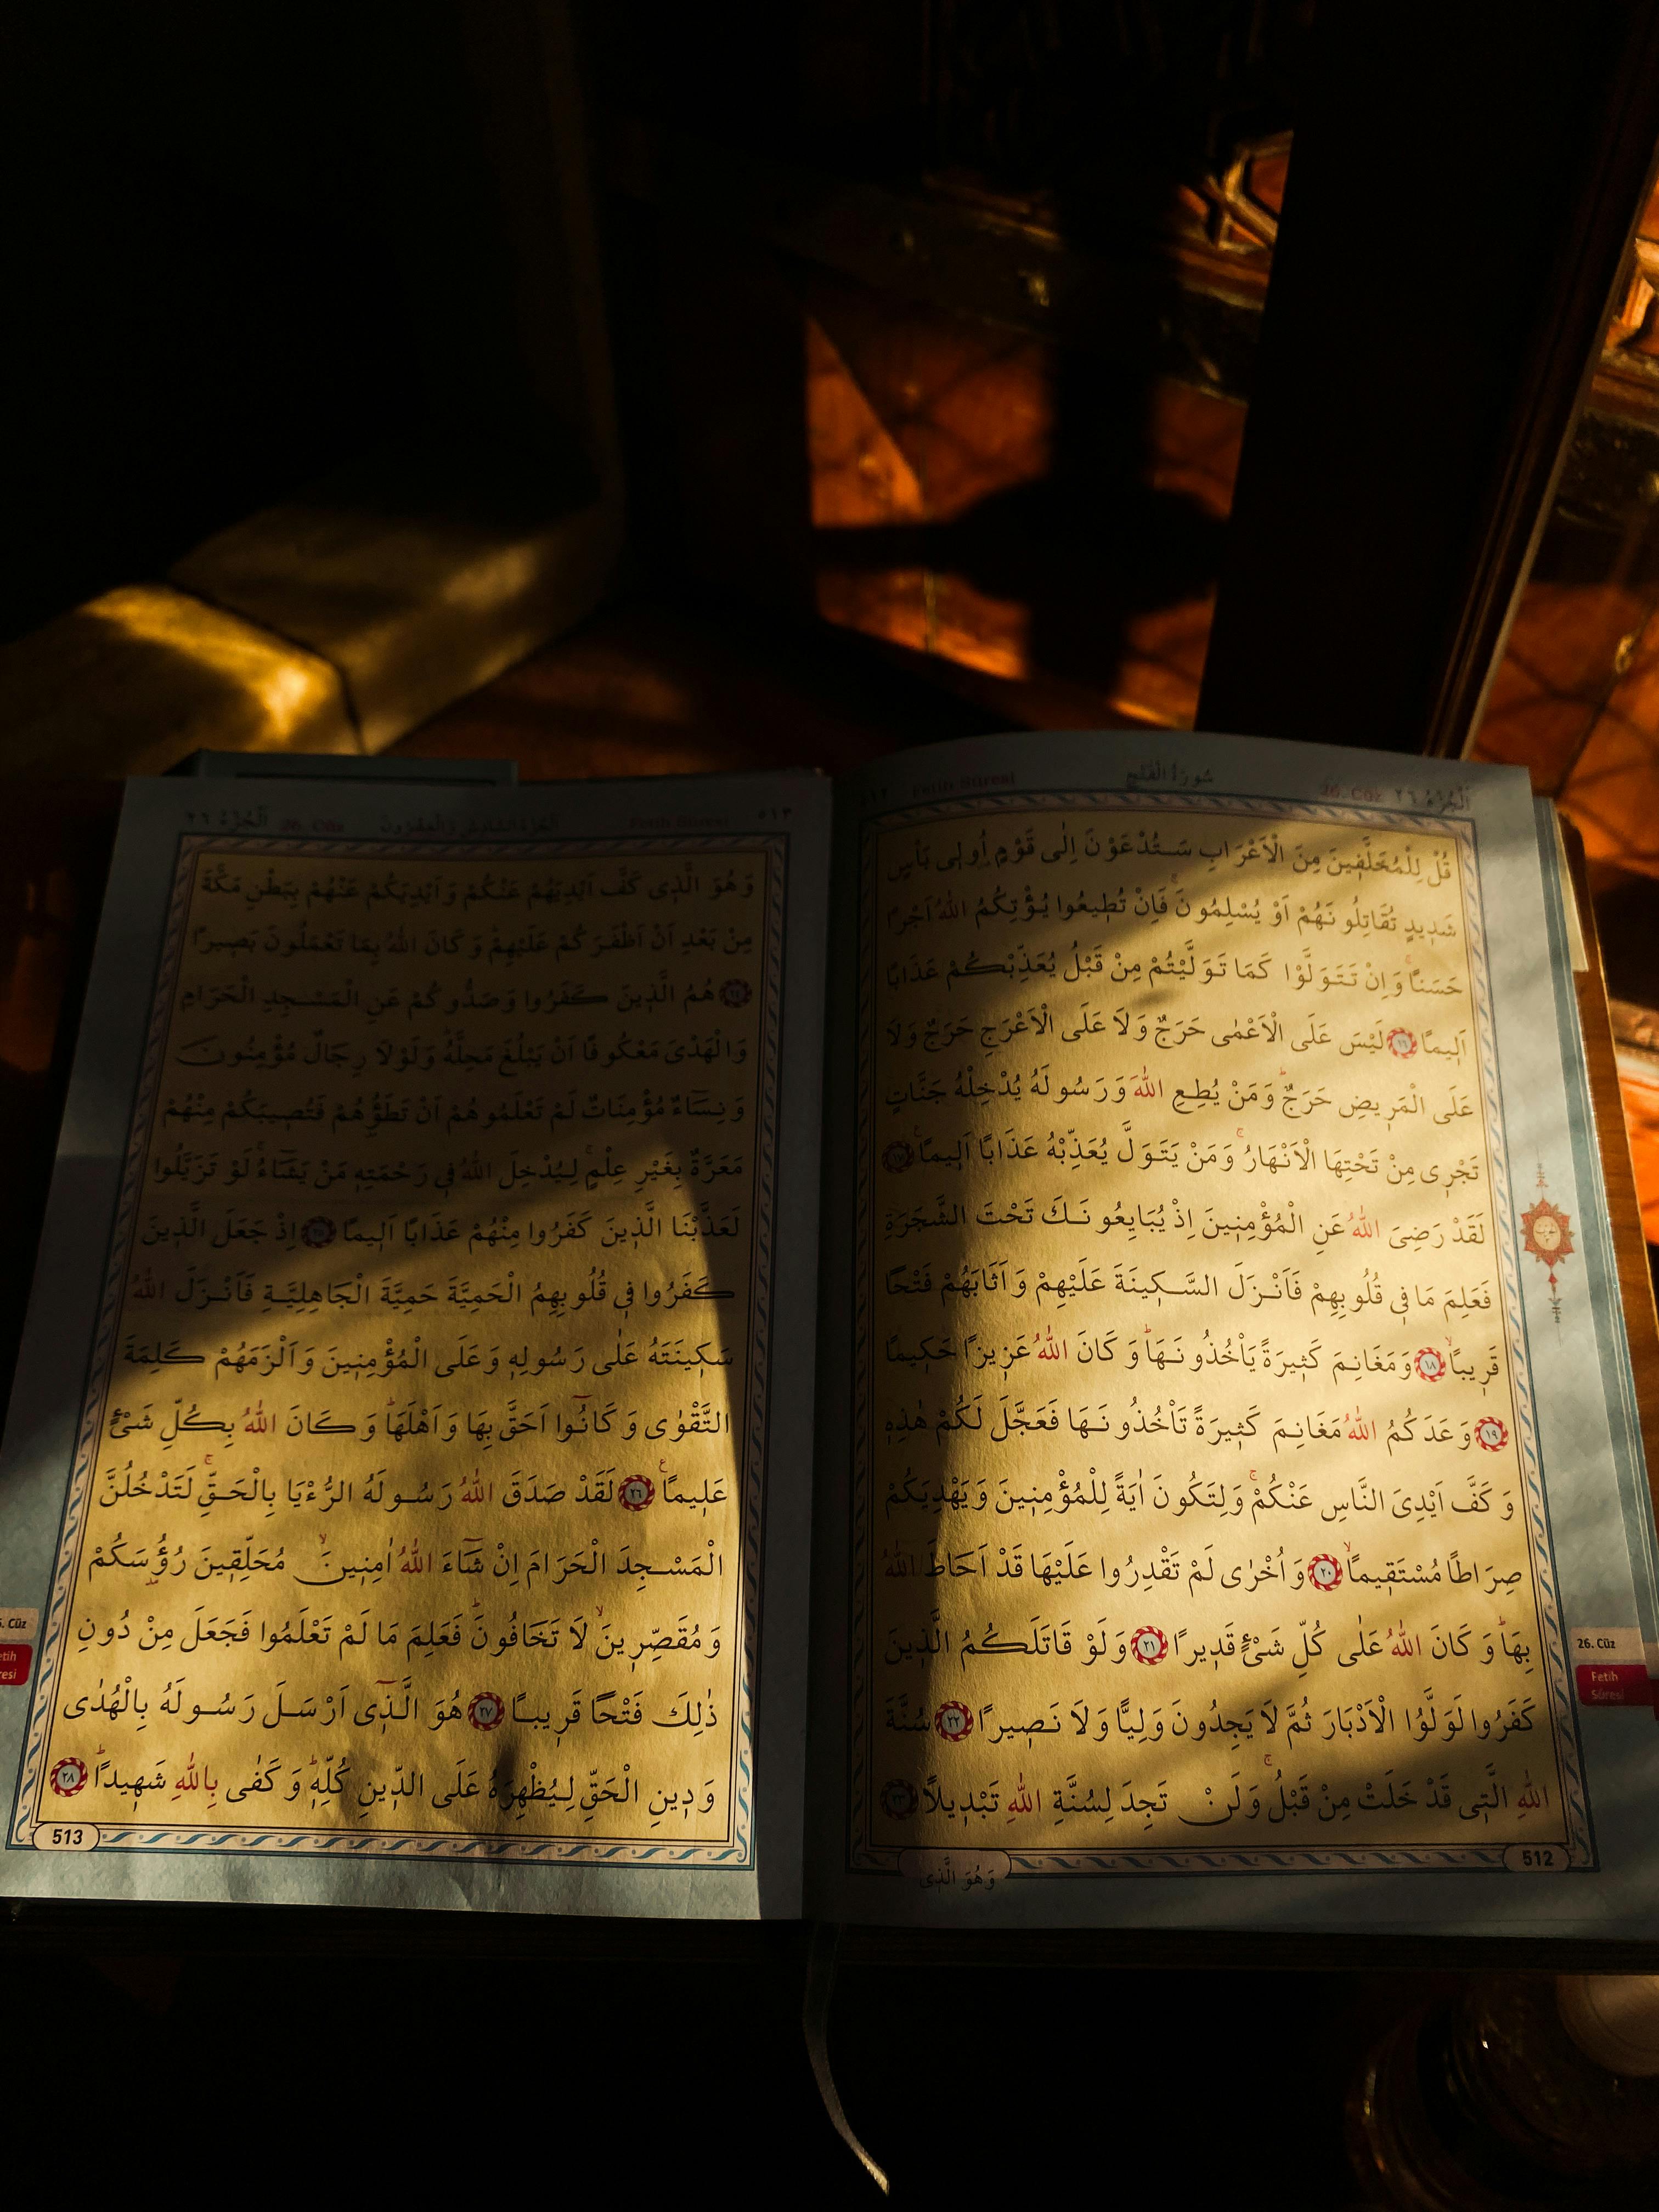 ٥١٢ Fetih Sûresi سُورَةُ الْفَتْحِ 26. Cüz اَلْجُزْءُ ٢٦
قُلْ لِلْمُخَلَّفٖينَ مِنَ الْاَعْرَابِ سَتُدْعَوْنَ اِلٰى قَوْمٍ اُو۬لٖى بَأْسٍ
شَدٖيدٍ تُقَاتِلُونَهُمْ اَوْ يُسْلِمُونَۚ فَاِنْ تُطٖيعُوا يُؤْتِكُمُ اللّٰهُ اَجْرًا
حَسَنًاۚ وَاِنْ تَتَوَلَّوْا كَمَا تَوَلَّيْتُمْ مِنْ قَبْلُ يُعَذِّبْكُمْ عَذَابًا
اَلٖيمًا ﴿١٦﴾ لَيْسَ عَلَى الْاَعْمٰى حَرَجٌ وَلَا عَلَى الْاَعْرَجِ حَرَجٌ وَلَا
عَلَى الْمَرٖيضِ حَرَجٌؕ وَمَنْ يُطِعِ اللّٰهَ وَرَسُولَهُ يُدْخِلْهُ جَنَّاتٍ
تَجْرٖى مِنْ تَحْتِهَا الْاَنْهَارُۚ وَمَنْ يَتَوَلَّ يُعَذِّبْهُ عَذَابًا اَلٖيمًاۚ ﴿١٧﴾
لَقَدْ رَضِىَ اللّٰهُ عَنِ الْمُؤْمِنٖينَ اِذْ يُبَايِعُونَكَ تَحْتَ الشَّجَرَةِ
فَعَلِمَ مَا فٖى قُلُوبِهِمْ فَاَنْزَلَ السَّكٖينَةَ عَلَيْهِمْ وَاَثَابَهُمْ فَتْحًا
قَرٖيبًاۙ ﴿١٨﴾ وَمَغَانِمَ كَثٖيرَةً يَأْخُذُونَهَاؕ وَكَانَ اللّٰهُ عَزٖيزًا حَكٖيمًا
﴿١٩﴾ وَعَدَكُمُ اللّٰهُ مَغَانِمَ كَثٖيرَةً تَأْخُذُونَهَا فَعَجَّلَ لَكُمْ هٰذِهٖ
وَكَفَّ اَيْدِىَ النَّاسِ عَنْكُمْۚ وَلِتَكُونَ اٰيَةً لِلْمُؤْمِنٖينَ وَيَهْدِيَكُمْ
صِرَاطًا مُسْتَقٖيمًاۙ ﴿٢٠﴾ وَاُخْرٰى لَمْ تَقْدِرُوا عَلَيْهَا قَدْ اَحَاطَ اللّٰهُ
بِهَاؕ وَكَانَ اللّٰهُ عَلٰى كُلِّ شَىْءٍ قَدٖيرًا ﴿٢١﴾ وَلَوْ قَاتَلَكُمُ الَّذٖينَ
كَفَرُوا لَوَلَّوُا الْاَدْبَارَ ثُمَّ لَا يَجِدُونَ وَلِيًّا وَلَا نَصٖيرًا ﴿٢٢﴾ سُنَّةَ
اللّٰهِ الَّتٖى قَدْ خَلَتْ مِنْ قَبْلُۚ وَلَنْ تَجِدَ لِسُنَّةِ اللّٰهِ تَبْدٖيلًا ﴿٢٣﴾
512
وَهُوَ الَّذٖى
26. Cüz
Fetih
Sûresi
٥١٣ Fetih Sûresi اَلْجُزْءُ السَّادِسُ وَالْعِشْرُونَ 26. Cüz اَلْجُزْءُ ٢٦
وَهُوَ الَّذٖى كَفَّ اَيْدِيَهُمْ عَنْكُمْ وَاَيْدِيَكُمْ عَنْهُمْ بِبَطْنِ مَكَّةَ
مِنْ بَعْدِ اَنْ اَظْفَرَكُمْ عَلَيْهِمْؕ وَكَانَ اللّٰهُ بِمَا تَعْمَلُونَ بَصٖيرًا
﴿٢٤﴾ هُمُ الَّذٖينَ كَفَرُوا وَصَدُّوكُمْ عَنِ الْمَسْجِدِ الْحَرَامِ
وَالْهَدْىَ مَعْكُوفًا اَنْ يَبْلُغَ مَحِلَّهُؕ وَلَوْلَا رِجَالٌ مُؤْمِنُونَ
وَنِسَٓاءٌ مُؤْمِنَاتٌ لَمْ تَعْلَمُوهُمْ اَنْ تَطَؤُ۫هُمْ فَتُصٖيبَكُمْ مِنْهُمْ
مَعَرَّةٌ بِغَيْرِ عِلْمٍۚ لِيُدْخِلَ اللّٰهُ فٖى رَحْمَتِهٖ مَنْ يَشَٓاءُۚ لَوْ تَزَيَّلُوا
لَعَذَّبْنَا الَّذٖينَ كَفَرُوا مِنْهُمْ عَذَابًا اَلٖيمًا ﴿٢٥﴾ اِذْ جَعَلَ الَّذٖينَ
كَفَرُوا فٖى قُلُوبِهِمُ الْحَمِيَّةَ حَمِيَّةَ الْجَاهِلِيَّةِ فَاَنْزَلَ اللّٰهُ
سَكٖينَتَهُ عَلٰى رَسُولِهٖ وَعَلَى الْمُؤْمِنٖينَ وَاَلْزَمَهُمْ كَلِمَةَ
التَّقْوٰى وَكَانُٓوا اَحَقَّ بِهَا وَاَهْلَهَاؕ وَكَانَ اللّٰهُ بِكُلِّ شَىْءٍ
عَلٖيمًا ﴿٢٦﴾ لَقَدْ صَدَقَ اللّٰهُ رَسُولَهُ الرُّءْيَا بِالْحَقِّۚ لَتَدْخُلُنَّ
الْمَسْجِدَ الْحَرَامَ اِنْ شَٓاءَ اللّٰهُ اٰمِنٖينَۙ مُحَلِّقٖينَ رُؤُ۫سَكُمْ
وَمُقَصِّرٖينَۙ لَا تَخَافُونَؕ فَعَلِمَ مَا لَمْ تَعْلَمُوا فَجَعَلَ مِنْ دُونِ
ذٰلِكَ فَتْحًا قَرٖيبًا ﴿٢٧﴾ هُوَ الَّذٖٓى اَرْسَلَ رَسُولَهُ بِالْهُدٰى
وَدٖينِ الْحَقِّ لِيُظْهِرَهُ عَلَى الدّٖينِ كُلِّهٖؕ وَكَفٰى بِاللّٰهِ شَهٖيدًاؕ ﴿٢٨﴾
513